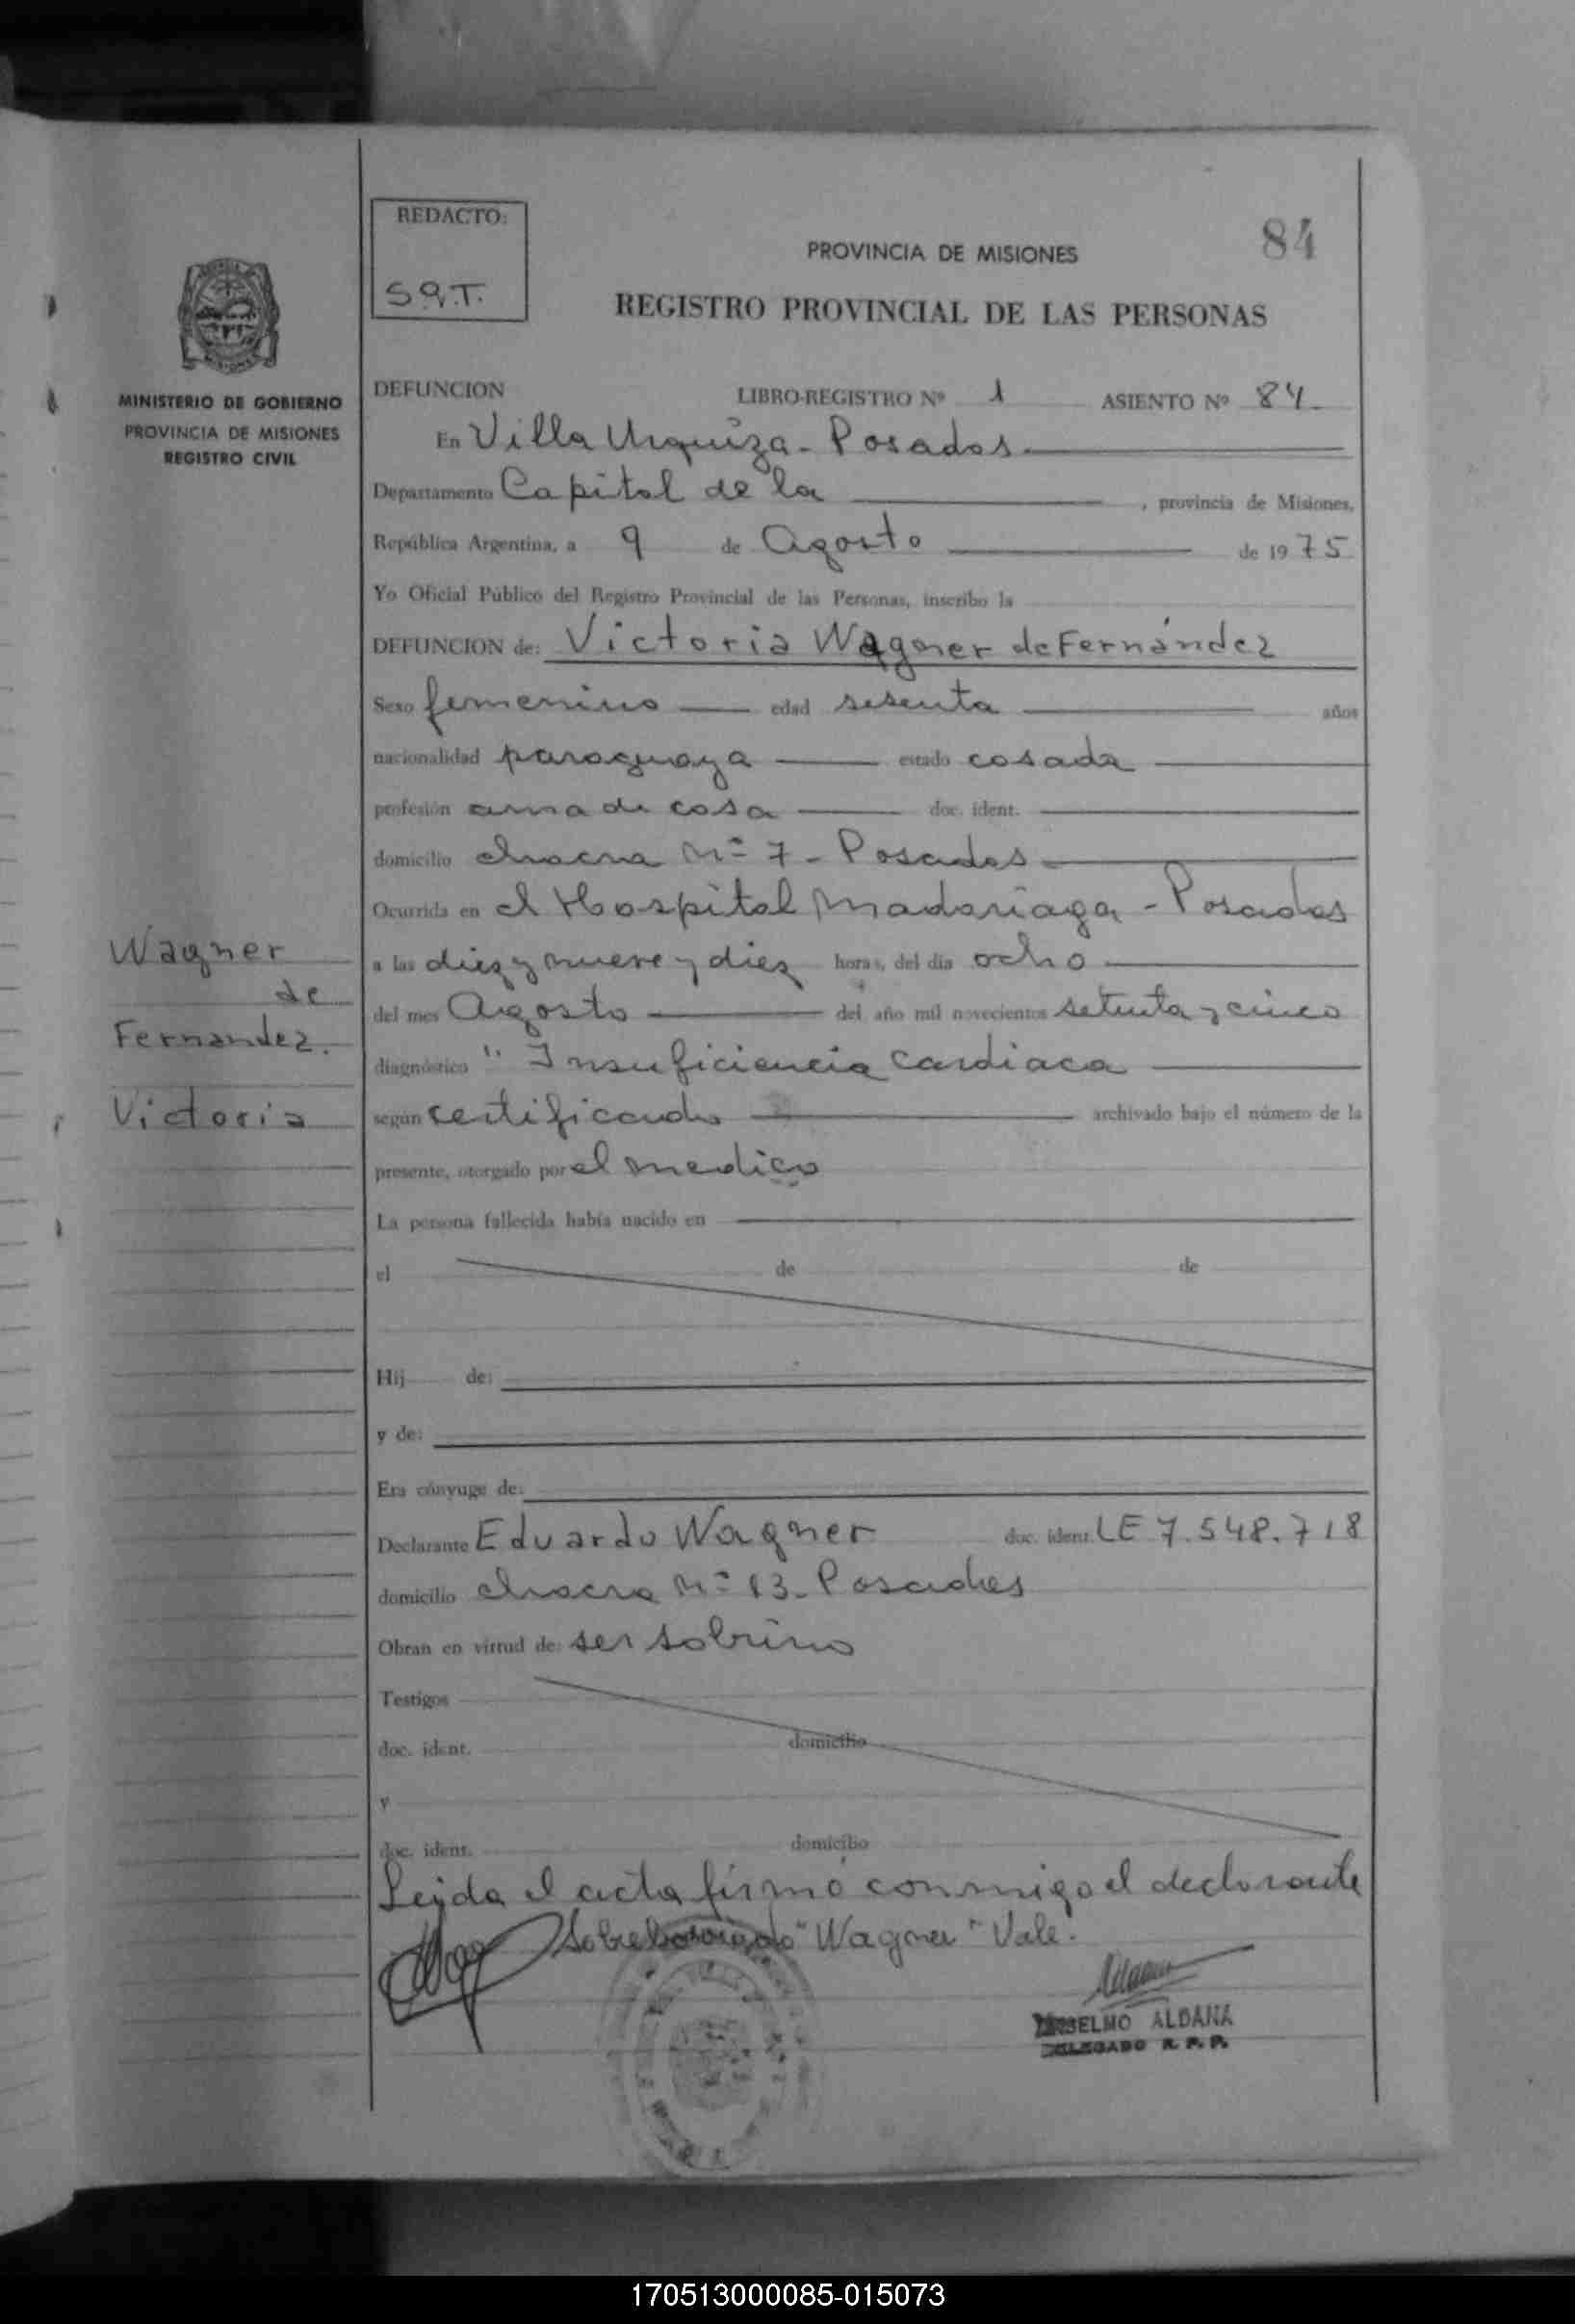 REDACTO:
S.Q.T.
84
PROVINCIA DE MISIONES
REGISTRO PROVINCIAL DE LAS PERSONAS
MINISTERIO DE GOBIERNO
PROVINCIA DE MISIONES
REGISTRO CIVIL
DEFUNCION LIBRO-REGISTRO Nº 1 ASIENTO Nº 84
En Villa Urquiza - Posadas
Departamento Capital de la , provincia de Misiones,
República Argentina, a 9 de Agosto de 1975
Yo Oficial Público del Registro Provincial de las Personas, inscribo la
DEFUNCION de: Victoria Wagner de Fernández
Sexo femenino edad sesenta años
nacionalidad paraguaya estado casada
profesión ama de casa doc. ident.
domicilio chacra Nº 7 - Posadas
Ocurrida en el Hospital Madariaga - Posadas
a las diez y nueve y diez horas, del día ocho
del mes Agosto del año mil novecientos setenta y cinco
diagnóstico " Insuficiencia cardiaca
según certificado archivado bajo el número de la
presente, otorgado por el medico
La persona fallecida había nacido en
el de de
Hij de:
y de:
Era cónyuge de:
Declarante Eduardo Wagner doc. ident. LE 7.548.718
domicilio chacra Nº 13 - Posadas
Obran en virtud de: ser sobrino
Testigos
doc. ident. domicilio
y
doc. ident. domicilio
Leida el acta firmó conmigo el declarante
Sobreborrado "Wagner" Vale.
ANSELMO ALDANA
DELEGADO R. P. P.
Wagner
de
Fernandez.
Victoria
170513000085-015073